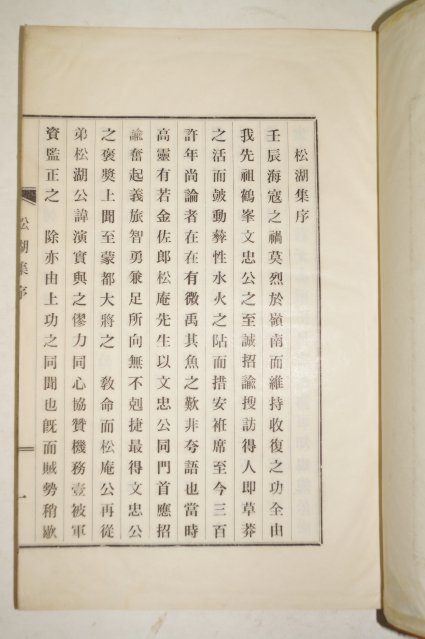 松湖集序
壬辰海寇之禍莫烈於嶺南而維持收復之功全由
我先祖鶴峯文忠公之至誠招諭搜訪得人即草莽
之活而皷動彜性水火之阽而措安袵席至今三百
許年尚論者在在有微禹其魚之歎非夸語也當時
高靈有若金佐郎松庵先生以文忠公同門首應招
諭奮起義旅智勇兼足所向無不剋捷最得文忠公
之褒奬上聞至蒙都大將之 敎命而松庵公再從
弟松湖公諱演實與之僇力同心協贊機務壹被軍
資監正之 除亦由上功之同聞也旣而賊勢稍歇
松湖集序
一